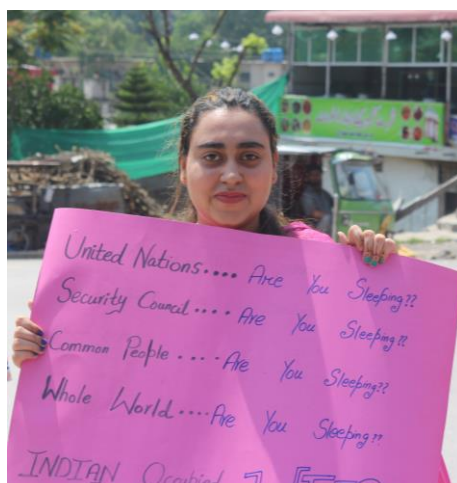 United Nations.... Are You Sleeping??
Security Council.... Are You Sleeping??
Common People .... Are You Sleeping??
Whole World.... Are You Sleeping??
INDIAN Occupied